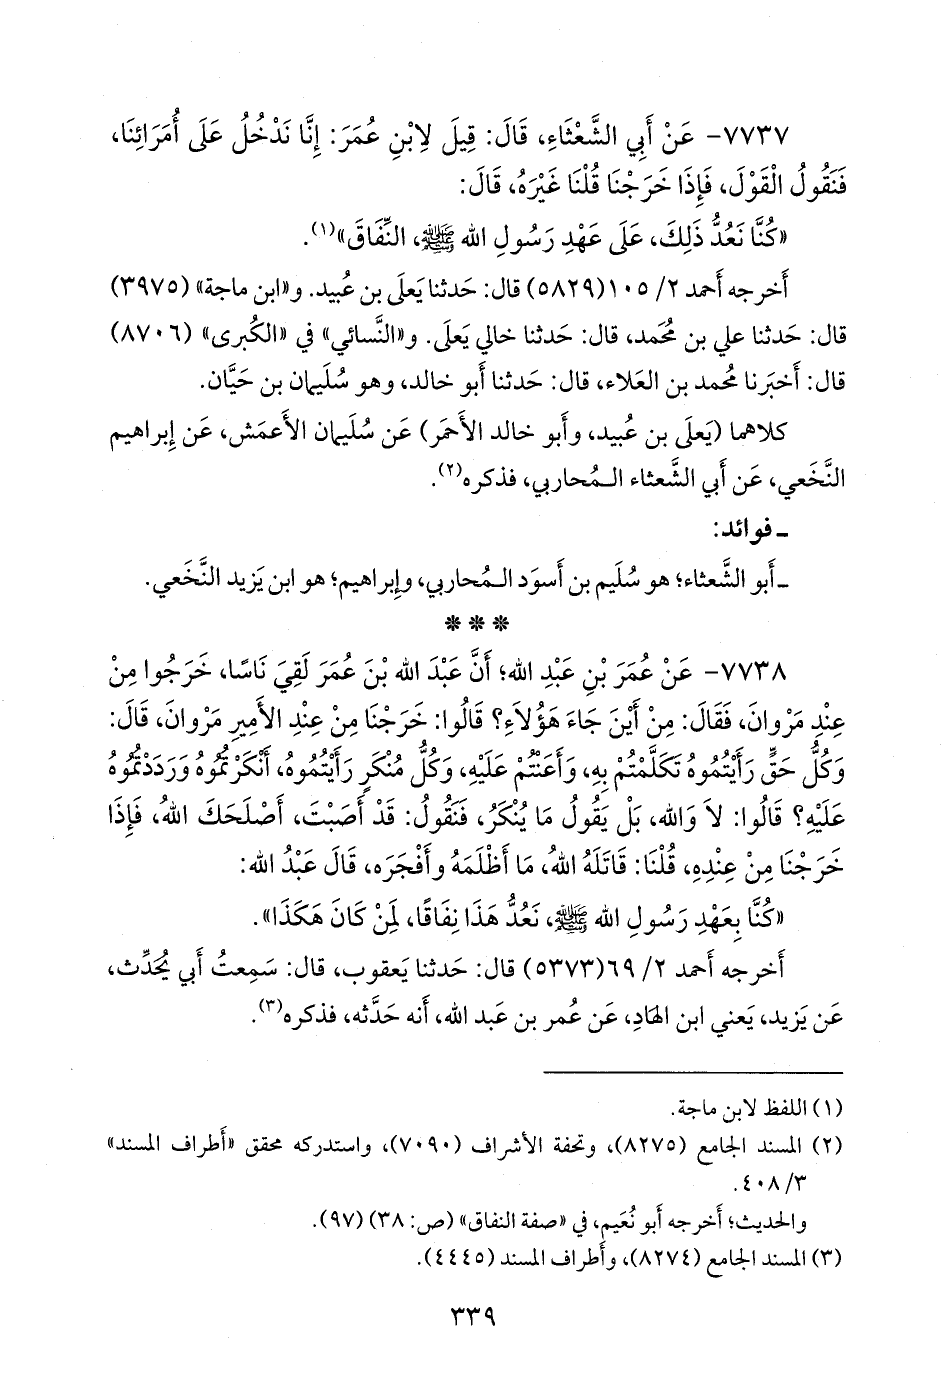 ٧٧٣٧- عَنْ أَبِي الشَّعْثَاءِ، قَالَ: قِيلَ لِابْنِ عُمَرَ: إِنَّا نَدْخُلُ عَلَى أُمَرَائِنَا،
فَنَقُولُ الْقَوْلَ، فَإِذَا خَرَجْنَا قُلْنَا غَيْرَهُ، قَالَ:
«كُنَّا نَعُدُّ ذَلِكَ، عَلَى عَهْدِ رَسُولِ الله ﷺ، النِّفَاقَ»(١).
أَخرجه أَحمد ٢/ ١٠٥(٥٨٢٩) قال: حَدثنا يَعلَى بن عُبيد. و«ابن ماجة» (٣٩٧٥)
قال: حَدثنا علي بن مُحمد، قال: حَدثنا خالي يَعلَى. و«النَّسائي» في «الكُبرى» (٨٧٠٦)
قال: أَخبَرنا مُحمد بن العَلاء، قال: حَدثنا أَبو خالد، وهو سُلَيمان بن حَيَّان.
كلاهما (يَعلَى بن عُبيد، وأَبو خالد الأَحمَر) عَن سُلَيمان الأَعمَش، عَن إِبراهيم
النَّخَعي، عَن أَبي الشَّعثاء المُحاربي، فذكره(٢).
ـ فوائد:
ـ أَبو الشَّعثاء؛ هو سُلَيم بن أَسوَد المُحاربي، وإِبراهيم؛ هو ابن يَزيد النَّخَعي.
* * *
٧٧٣٨- عَنْ عُمَرَ بْنِ عَبْدِ الله؛ أَنَّ عَبْدَ الله بْنَ عُمَرَ لَقِيَ نَاسًا، خَرَجُوا مِنْ
عِنْدِ مَرْوانَ، فَقَالَ: مِنْ أَيْنَ جَاءَ هَؤُلاَءِ؟ قَالُوا: خَرَجْنَا مِنْ عِنْدِ الأَمِيرِ مَرْوانَ، قَالَ:
وَكُلُّ حَقٍّ رَأَيْتُمُوهُ تَكَلَّمْتُمْ بِهِ، وَأَعَنْتُمْ عَلَيْهِ، وَكُلُّ مُنْكَرٍ رَأَيْتُمُوهُ، أَنْكَرْتُمُوهُ وَرَدَدْتُمُوهُ
عَلَيْهِ؟ قَالُوا: لاَ وَالله، بَلْ يَقُولُ مَا يُنْكَرُ، فَنَقُولُ: قَدْ أَصَبْتَ، أَصْلَحَكَ اللهُ، فَإِذَا
خَرَجْنَا مِنْ عِنْدِهِ، قُلْنَا: قَاتَلَهُ اللهُ، مَا أَظْلَمَهُ وأَفْجَرَه، قَالَ عَبْدُ الله:
«كُنَّا بِعَهْدِ رَسُولِ الله ﷺ، نَعُدُّ هَذَا نِفَاقًا، لِمَنْ كَانَ هَكَذَا».
أَخرجه أَحمد ٢/ ٦٩(٥٣٧٣) قال: حَدثنا يَعقوب، قال: سَمِعتُ أَبي يُحَدِّث،
عَن يَزيد، يَعني ابن الهَادِ، عَن عُمر بن عَبد الله، أَنه حَدَّثه، فذكره(٣).
(١) اللفظ لابن ماجة.
(٢) المسند الجامع (٨٢٧٥)، وتحفة الأشراف (٧٠٩٠)، واستدركه محقق «أَطراف المسند»
٣/ ٤٠٨.
والحديث؛ أَخرجه أَبو نُعَيم، في «صفة النفاق» (ص: ٣٨) (٩٧).
(٣) المسند الجامع (٨٢٧٤)، وأَطراف المسند (٤٤٤٥).
٣٣٩